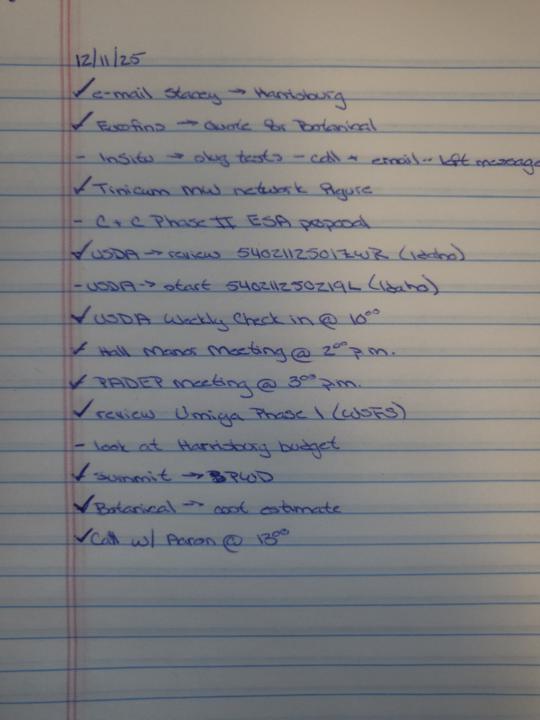 12/11/25
✓ e-mail Stacey → Harrisburg
✓ Eurofins → quote for Botanical
- InSitu → tests - call + email - left message
✓ Tinicum MW network figure
- C + C Phase II ESA proposal
✓ USDA → review (Idaho)
- USDA → start (Idaho)
✓ USDA Weekly Check in @ 10⁰⁰
✓ Hall Manor Meeting @ 2⁰⁰ p.m.
✓ PADEP meeting @ 3⁰⁰ p.m.
✓ review Phase 1 (WSFS)
- look at Harrisburg budget
✓ Summit → PWD
✓ Botanical → cost estimate
✓ Call w/ Aaron @ 13⁰⁰